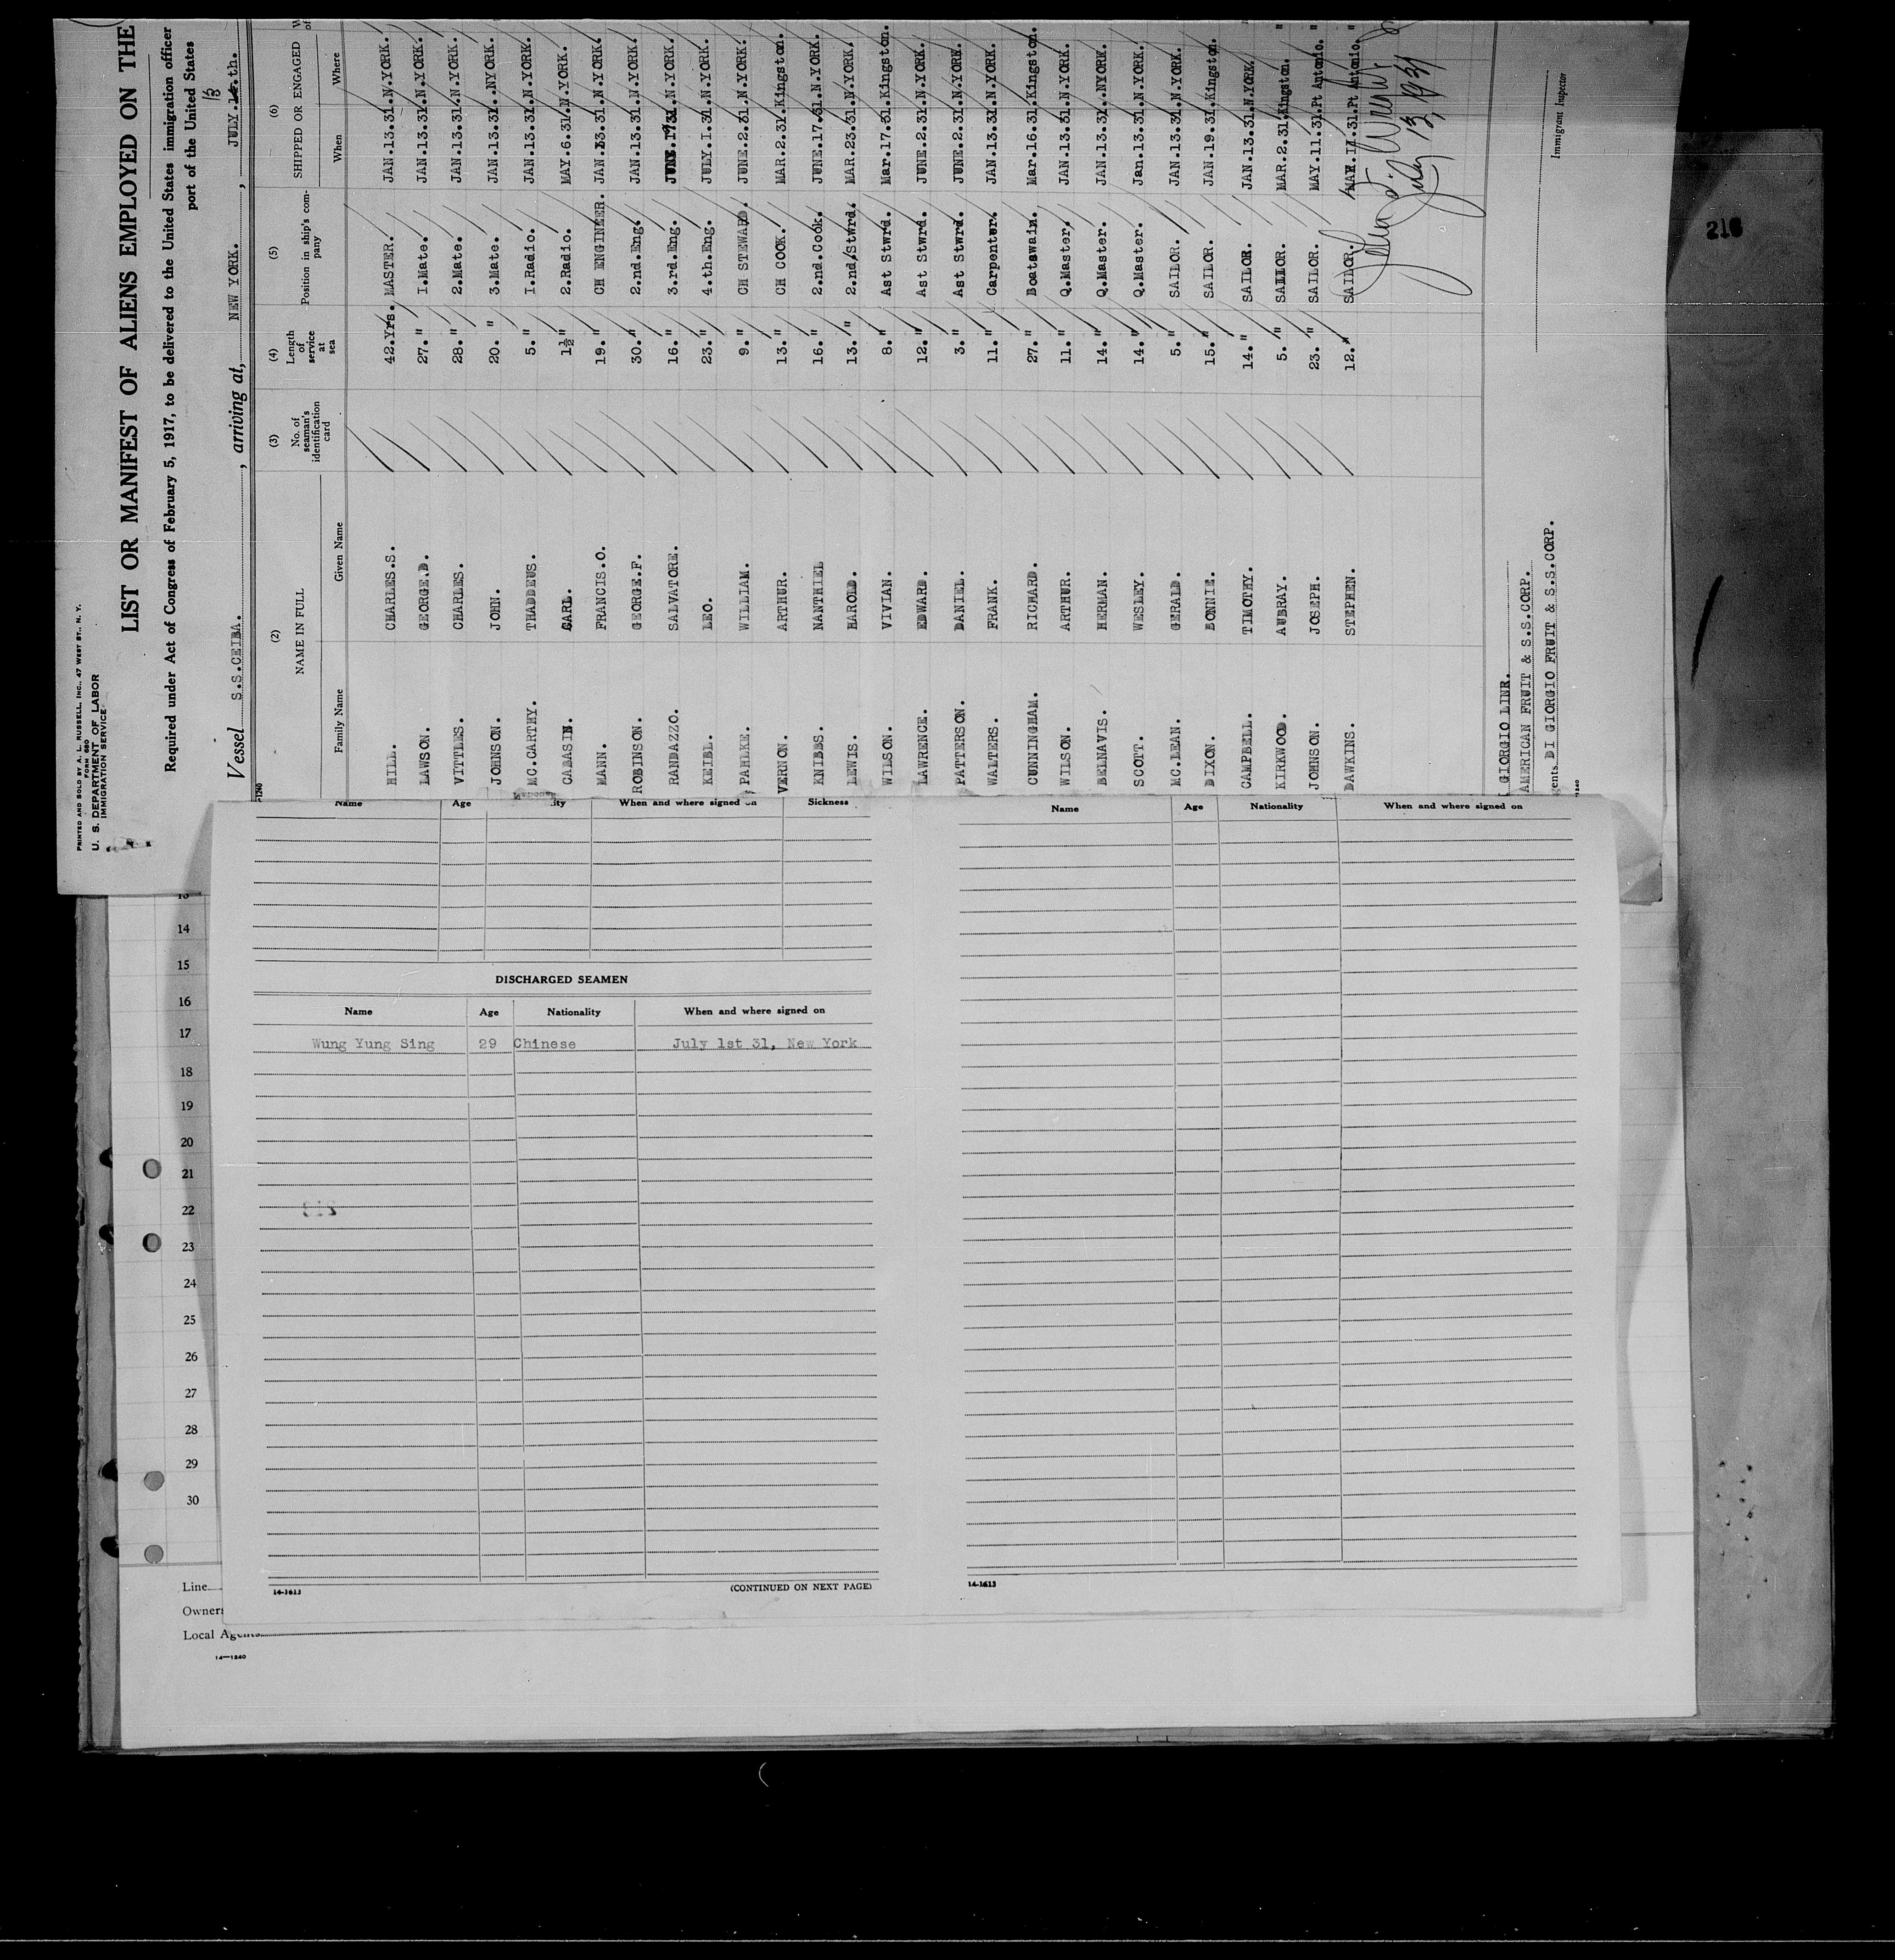 PRINTED AND SOLD BY A. L. RUSSELL, INC., 47 WEST ST., N. Y.
FORM 680
U. S. DEPARTMENT OF LABOR
IMMIGRATION SERVICE
LIST OR MANIFEST OF ALIENS EMPLOYED ON THE
Required under Act of Congress of February 5, 1917, to be delivered to the United States immigration officer
port of the United States
13
Vessel S.S.CEIBA. , arriving at, NEW YORK. , JULY.14.th.
(2) (3) (4) (5) (6)
NAME IN FULL No. of seaman's identification card Length of service at sea Position in ship's company SHIPPED OR ENGAGED
Family Name Given Name When Where
HILL. CHARLES.S. 42.Yrs. MASTER. JAN.13.31.N.YORK.
LAWSON. GEORGE.D. 27." I.Mate. JAN.13.31.N.YORK.
VITTLES. CHARLES. 28." 2.Mate. JAN.13.31.N.YORK.
JOHNSON. JOHN. 20." 3.Mate. JAN.13.31.NYORK.
MC.CARTHY. THADDEUS. 5." I.Radio. JAN.13.31.N.YORK.
CABASIN. CARL. 1½" 2.Radio. MAY.6.31.N.YORK.
MANN. FRANCIS.O. 19." CH ENGINEER. JAN.13.31.N.YORK.
ROBINSON. GEORGE.F. 30." 2.nd.Eng. JAN.13.31.N.YORK.
RANDAZZO. SALVATORE. 16." 3.rd.Eng. JUNE.17.31.N.YORK.
KEIBL. LEO. 23." 4.th.Eng. JULY.I.31.N.YORK.
PAHLKE. WILLIAM. 9." CH STEWARD. JUNE.2.31.N.YORK.
VERNON. ARTHUR. 13." CH COOK. MAR.2.31.Kingston.
KNIBBS. NANTHIEL 16." 2.nd.Cook. JUNE.17.31.N.YORK.
LEWIS. HAROLD. 13." 2.nd/Stwrd. MAR.23.31.N.YORK.
WILSON. VIVIAN. 8." Ast Stwrd. Mar.17.31.Kingston.
LAWRENCE. EDWARD. 12." Ast Stwrd. JUNE.2.31.N.YORK.
PATTERSON. DANIEL. 3." Ast Stwrd. JUNE.2.31.N.YORK.
WALTERS. FRANK. 11." Carpenter. JAN.13.31.N.YORK.
CUNNINGHAM. RICHARD. 27." Boatswain. Mar.16.31.Kingston.
WILSON. ARTHUR. 11." Q.Master. JAN.13.31.N.YORK.
BELNAVIS. HERMAN. 14." Q.Master. JAN.13.31.NYORK.
SCOTT. WESLEY. 14." Q.Master. Jan.13.31.N.YORK.
MC.LEAN. GERALD. 5." SAILOR. JAN.13.31.N.YORK.
DIXON. BONNIE. 15." SAILOR. JAN.19.31.Kingston.
CAMPBELL. TIMOTHY. 14." SAILOR. JAN.13.31.N.YORK. "
KIRKWOOD. AUBRAY. 5." SAILOR. MAR.2.31.Kingston. "
JOHNSON. JOSEPH. 23." SAILOR. MAY.11.31.Pt Antonio. "
DAWKINS. STEPHEN. 12." SAILOR. MAY.11.31.Pt Antonio. "
July 13, 1931
GIORGIO LINE.
AMERICAN FRUIT & S.S.CORP.
ents DI GIORGIO FRUIT & S.S.CORP.
Immigrant Inspector
216
Name Age When and where signed on Sickness
DISCHARGED SEAMEN
Name Age Nationality When and where signed on
Wung Yung Sing 29 Chinese July 1st 31, New York
14-1613 (CONTINUED ON NEXT PAGE)
Name Age Nationality When and where signed on
14-1613
13
14
15
16
17
18
19
20
21
22
23
24
25
26
27
28
29
30
Line
Owners
Local Agents
14-1240